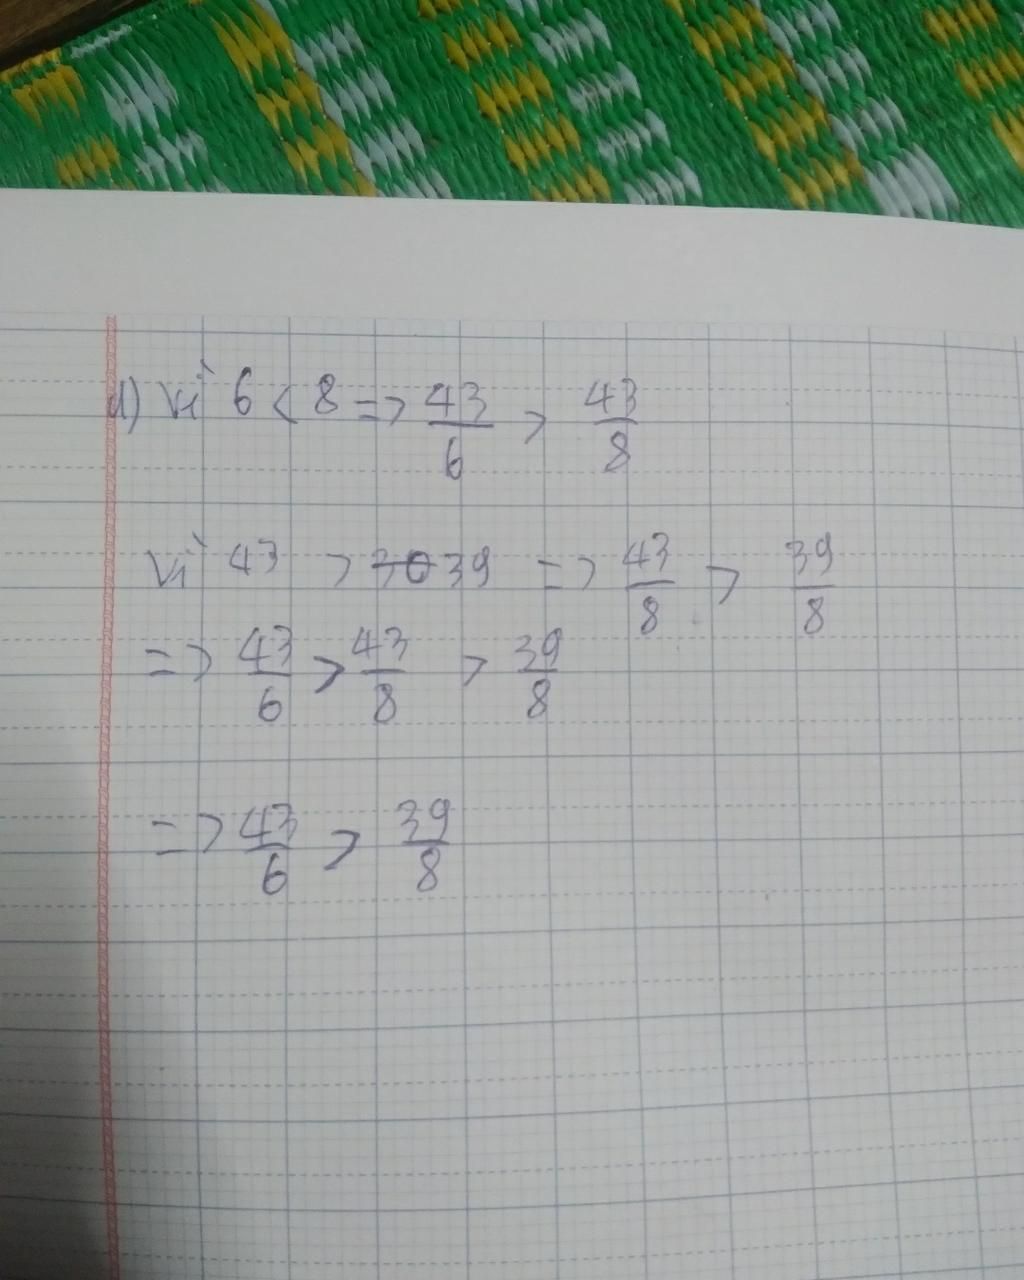 d) Vì 6 < 8 => 43/6 > 43/8
Vì 43 > 30 39 => 43/8 > 39/8
=> 43/6 > 43/8 > 39/8
=> 43/6 > 39/8